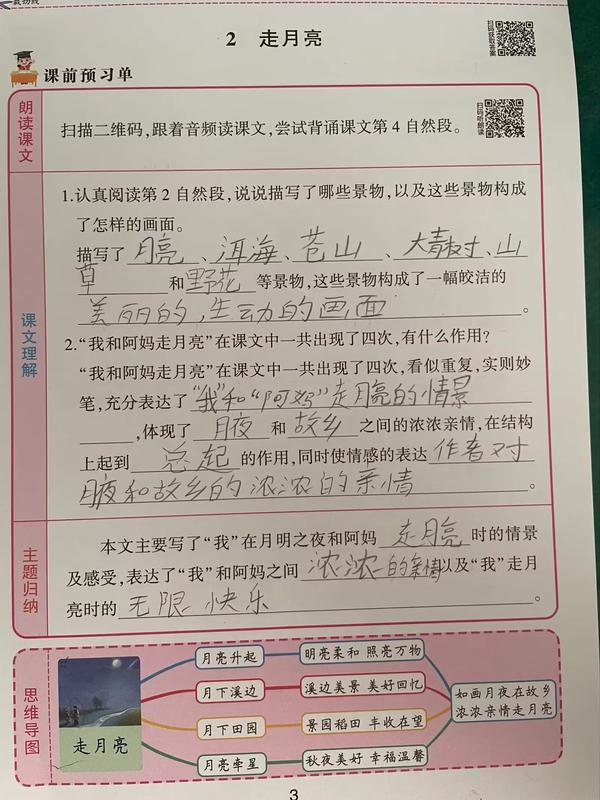 裁切线
2 走月亮
扫码获取答案
课前预习单
朗读课文
扫描二维码,跟着音频读课文,尝试背诵课文第4自然段。
扫码听朗读
课文理解
1.认真阅读第2自然段,说说描写了哪些景物,以及这些景物构成
了怎样的画面。
描写了 月亮、洱海、苍山、大青树、山
草 和 野花 等景物,这些景物构成了一幅皎洁的
美丽的,生动的画面。
2.“我和阿妈走月亮”在课文中一共出现了四次,有什么作用?
“我和阿妈走月亮”在课文中一共出现了四次,看似重复,实则妙
笔,充分表达了“我”和“阿妈”走月亮的情景
,体现了 月夜 和 故乡 之间的浓浓亲情,在结构
上起到 总起 的作用,同时使情感的表达 作者对
月夜和故乡的浓浓的亲情。
主题归纳
本文主要写了“我”在月明之夜和阿妈 走月亮 时的情景
及感受,表达了“我”和阿妈之间 浓浓的亲情以及“我”走月
亮时的 无限快乐。
思维导图
走月亮
月亮升起 明亮柔和 照亮万物
月下溪边 溪边美景 美好回忆
月下田园 景园稻田 丰收在望
月亮牵星 秋夜美好 幸福温馨
如画月夜在故乡
浓浓亲情走月亮
3